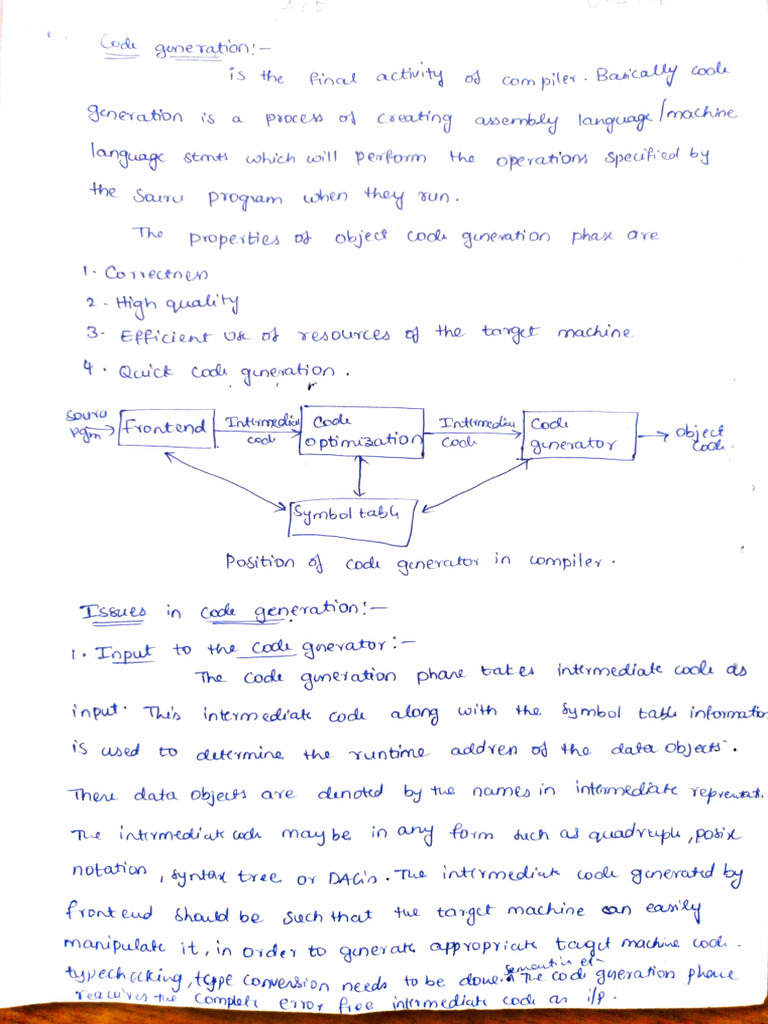 Code generation:-
is the final activity of compiler. Basically code
generation is a process of creating assembly language/machine
language stmts which will perform the operations specified by
the Source program when they run.
The properties of object code generation phase are
1. Correctness
2. High quality
3. Efficient use of resources of the target machine
4. Quick code generation.
Source pgm
frontend
Intermediate code
Code optimization
Intermediate code
Code generator
object code.
Symbol table
Position of code generator in compiler.
Issues in code generation:-
1. Input to the code gnerator:-
The code generation phase takes intermediate code as
input. This intermediate code along with the symbol table information
is used to determine the runtime address of the data objects.
These data objects are denoted by the names in intermediate
The intermediate code maybe in any form such as quadruple, posix
notation, syntax tree or DAG's. The intermediate code generated by
frontend should be such that the target machine can easily
manipulate it, in order to generate appropriate target machine code.
typechecking, type conversion needs to be done. The code generation phase
requires the complete error free intermediate code as i/p.